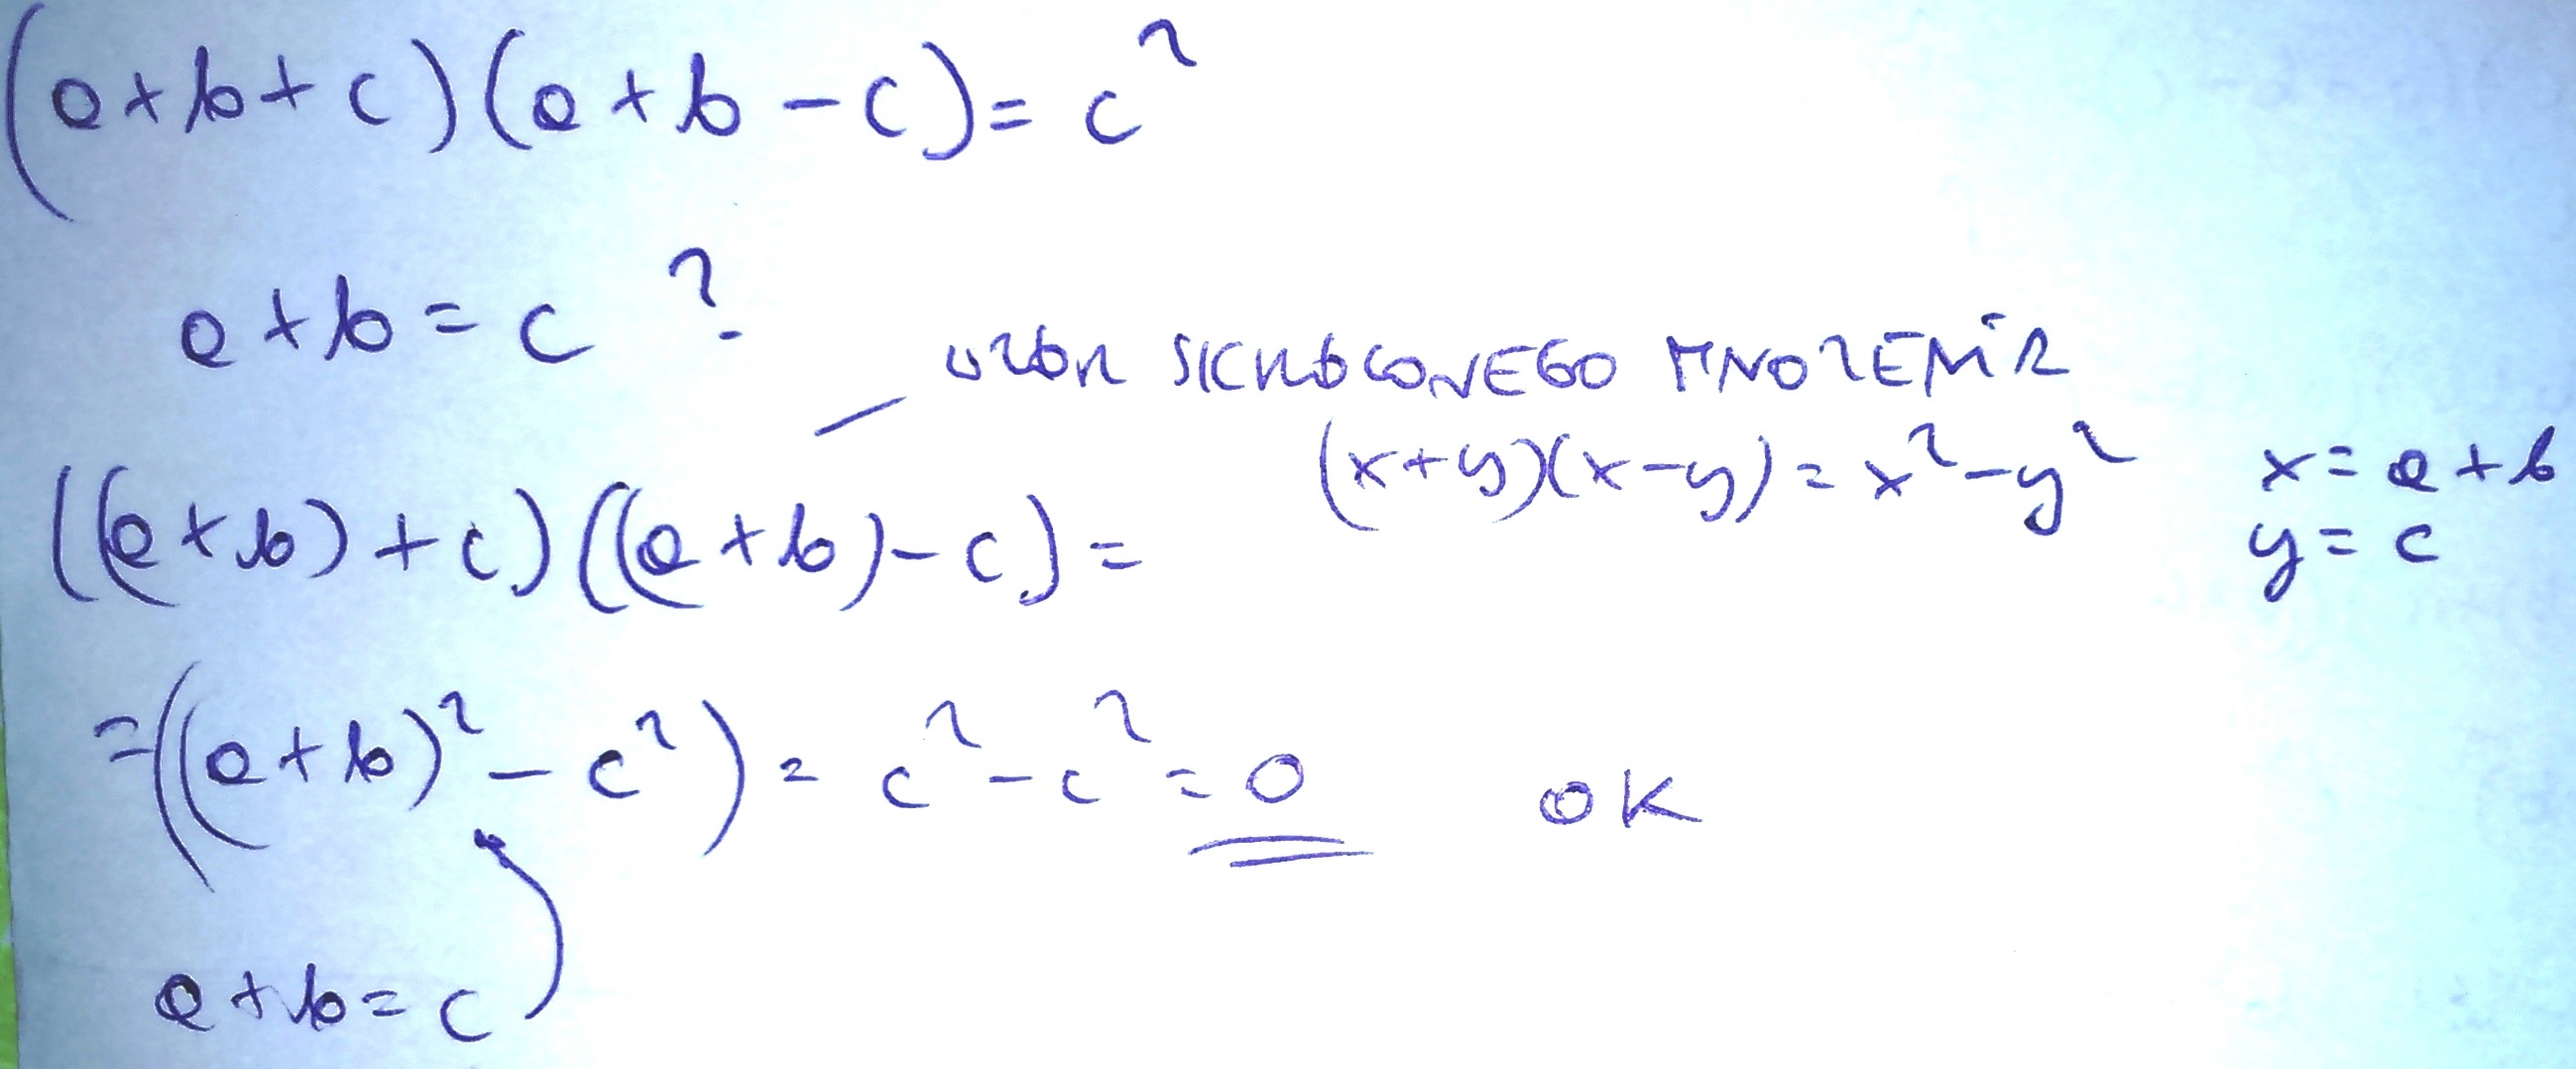 (a+b+c)(a+b-c)=c²
a+b=c ?
WZÓR SKRÓCONEGO MNOŻENIA
(x+y)(x-y)=x²-y² x=a+b
y=c
((a+b)+c)((a+b)-c)=
=((a+b)²-c²)=c²-c²=0 OK
a+b=c